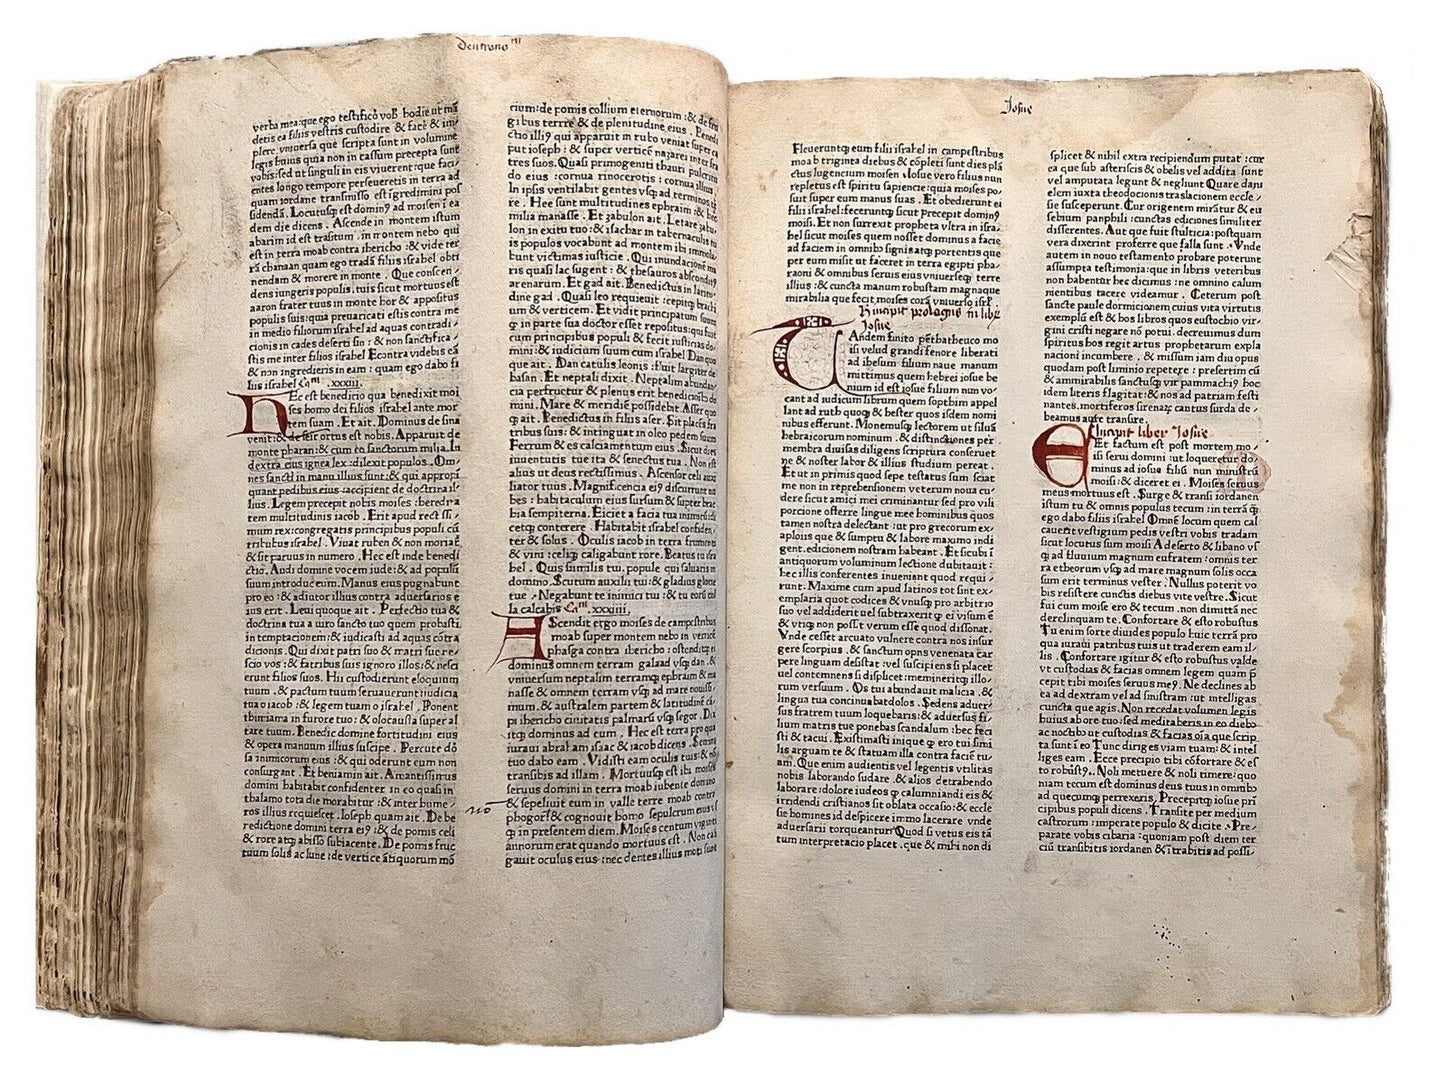 Deutrono^m
verba mea: que ego testifico voß hodie ut mã
detis ea filiis vestris custodire & facē & im/
plere vniuersa quę scripta sunt in volumine
legis huius quia non in cassum precepta sunt
vobis: sed ut singuli in eis viuerent: que faci/
entes longo tempore perseueretis in terra ad
quam iordane transmisso estis ingredimini pos
sidendã. Locutusq̃ est domin9 ad moisen ĩ ea
dem die dicens. Ascende in montem istum
abarim id est trãsitum. in montem nebo qui
est in terra moab contra ihericho: & vide ter
rã chanaan quam ego tradã filiis israhel obti
nendam & morere in monte. Que conscen/
dens iungeris populis tuis sicut mortuus est
aaron frater tuus in monte hor & appositus
populis suis: quia preuaricati estis contra me
in medio filiorum israhel ad aquas contradi/
ctionis in cades deserti sin: & non sanctifica/
stis me inter filios israhel Econtra videbis eã
& non ingredieris in eam: quam ego dabo fi
liis israhel Ca^m .xxxiii.
Hec est benedictio qua benedixit moi
ses homo dei filios israhel ante mor
tem suam. Et ait. Dominus de sina
venit: & de seir ortus est nobis. Apparuit de
monte pharan: & cum eo sanctorum milia. In
dextra eius ignea lex: dilexit populos. Om/
nes sancti in manu illius sunt: & qui appropĩ
quant pedibus eius: accipient de doctrina il/
lius. Legem precepit nobis moises: heredita
tem multitudinis iacob. Erit apud rectissi/
mum rex: congregatis principibus populi cũ
tribubus israhel. Viuat ruben & non moriat̃
& sit paruus in numero. Hec est iude benedi
ctio. Audi domine vocem iude: & ad populũ
suum introduc eum. Manus eius pugnabunt
pro eo: & adiutor illius contra aduersarios e
ius erit. Leui quoque ait. Perfectio tua &
doctrina tua a uiro sancto tuo quem probasti
in temptacionem: & iudicasti ad aquas cõtra
dicionis. Qui dixit patri suo & matri sue ne/
scio vos: & fratribus suis ignoro illos: & nesci
erunt filios suos. Hii custodierunt eloquium
tuum. & pactum tuum seruauerunt: iudicia
tua o iacob: & legem tuam o israhel. Ponent
thimiama in furore tuo: & olocausta super al
tare tuum. Benedic domine fortitudini eius
& opera manuum illius suscipe. Percute dõ
sa inimicorum eius: & qui oderunt eum non
consurgant. Et beniamin ait. Amantissimus
domini habitabit confidenter in eo quasi in
thalamo tota die morabitur: & inter hume/
ros illius requiescet. Ioseph quam ait. De be
nedictione domini terra ei9: & de pomis celi
& rore atq̃ abisso subiacente. De pomis fruc
tuum solis ac lune: de vertice ãtiquorum mõ
cium: de pomis collium eternorum: & de fru
gibus terre & de plenitudine eius. Benedi
ctio illi9 qui apparuit in rubo veniat super ca
put ioseph: & super verticē nazarei inter fra
tres suos. Quasi primogeniti thauri pulcritu
do eius: cornua rinocerotis: cornua illius.
In ipsis ventilabit gentes vsq̃ ad terminos ter
re. Hee sunt multitudines ephraim: & hec
milia manasse. Et zabulon ait. Letare zabu/
lon in exitu tuo: & isachar in tabernaculis tu
is populos vocabunt ad montem ibi immola/
bunt victimas iusticie. Qui inundacionē ma
ris quasi lac sugent: & thesauros abscondit9
arenarum. Et gad ait. Benedictus in latitu/
dine gad. Quasi leo requieuit: cepitq̃ brachi
um & verticem. Et vidit principatum suum
q̃ in parte sua doctor esset repositus: qui fuit
cum principibus populi & fecit iusticias do/
mini: & iudicium suum cum israhel Dan quo
que ait. Dan catulus leonis: fluit largiter de
basan. Et neptali dixit. Neptalim abundan
cia perfructur & plenus erit benedictiõib9 do
mini. Mare & meridiē possidebit. Aser quo
q̃ ait. Benedictus in filiis aser. Sit placēs fra
tribus suis: & intinguat in oleo pedem suum
Ferrum & es calciamentum eius. Sicut dies
iuuentutis tue ita & senectus tua. Non est
alius ut deus rectissimus. Ascensor celi auxi
liator tuus. Magnificencia ei9 discurrunt nu
bes: habitaculum eius sursum & supter brac
hia sempiterna. Eiciet a facie tua inimicũ: di
cetq̃ conterere. Habitabit israhel confiden/
ter & solus. Oculus iacob in terra frumenti
& vini: celiq̃ caligabunt rore. Beatus tu isra
hel. Quis similis tui, popule qui saluaris in
domino. Scutum auxilii tui: & gladius glorie
tue. Negabunt te inimici tui: & tu eorũ col
la calcabis Ca^m. xxxiiii.
Ascendit ergo moises de campestribus
moab super montem nebo in verticē
phasga contra ihericho: ostenditq̃ ei
dominus omnem terram galaad vsq̃ dan. &
vniuersum neptalim terramq̃ ephraim & ma
nasse & omnem terram vsq̃ ad mare nouissi/
mum. & australem partem & latitudinē cã
pi ihericho ciuitatis palmarũ vsq̃ segor. Dix
itq̃ dominus ad eum. Hec est terra pro qua
iuraui abraham isaac & iacob dicens. Semini
tuo dabo eam. Vidisti eam oculis tuis: & nõ
transibis ad illam. Mortuusq̃ est ibi moises
seruus domini in terra moab iubente domino
no
& sepeliuit eum in valle terre moab contra
phogor: & cognouit homo sepulcrum eius vs
q̃ in presentem diem. Moises centum viginti
annorum erat quando mortuus est. Non cali
gauit oculus eius. nec dentes illius moti sunt
Iosue
Fleueruntq̃ eum filii israhel in campestribus
moab triginta diebus & cõpleti sunt dies plã
ctus lugencium moisen Iosue vero filius nun
repletus est spiritu sapiencie: quia moises po/
suit super eum manus suas. Et obedierunt ei
filii israhel: feceruntq̃ sicut precepit domin9
moisi. Et non surrexit propheta vltra in isra/
hel sicut moises quem nosset dominus a facie
ad faciem in omnib9 signis atq̃ portentis que
per eum misit ut faceret in terra egipti pha/
raoni & omnibus seruis eius vniuerseq̃ terre
illius: & cuncta manum robustam magnaque
mirabilia que fecit moises corã vniuerso isrl̃.
Incipit prologus in libr̃
Iosue
Tandem finito pēthatheuco mo
isi velud grandi fenore liberati
ad ihesum filium naue manum
mittimus quem hebrei iosue be
nium id est iosue filium nun vo/
cant ad iudicum librum quem sopthim appel
lant ad ruth quoq̃ & hester quos isdem nomi
nibus efferunt. Monemusq̃ lectorem ut siluã
hebraicorum nominum. & distinctiões per
membra diuisas diligens scriptor conseruet
ne & noster labor & illius studium pereat.
Et ut in primis quod sepe testatus sum sciat
me non in reprehensionem veterum noua cu
dere sicut amici mei criminantur sed pro vili
porcione offerre lingue mee hominibus quos
tamen nostra delectant: ut pro grecorum ex/
aploiis que & sumptu & labore maximo indi
gent. edicionem nostram habeant. Et sicubi ĩ
antiquorum voluminum lectione dubitauit:
hec illis conferentes inueniant quod requi/
runt. Maxime cum apud latinos tot sint ex/
emplaria quot codices & vnusq̃ pro arbitrio
suo vel addiderit uel subtraxerit ei visum ē
& vtiq̃ non possit verum esse quod dissonat.
Vnde cesset arcuato vulnere contra nos insur
gere scorpius. & sanctum opus venenata car
pere linguam desistat: vel suscipiens si placet
uel contemnens si displicet: memineritq̃ illo/
rum versuum. Os tui abundauit malicia. &
lingua tua concinnabat dolos. Sedens aduer/
sus fratrem tuum loquebaris: & aduersus fi
lium matris tue ponebas scandalum: hec feci
sti & tacui. Existimasti inique q̃ ero tui simi
lis arguam te & statuam illa contra faciē tu/
am. Que enim audientis vel legentis vtilitas
nobis laborando sudare. & alios detrahendo
laborare: dolore iudeos q̃ calumniandi eis &
irridendi cristianos sit oblata occasio: & eccle
sie homines id despicere immo lacerare vnde
aduersarii torqueantur Quod si vetus eis tã
tum interpretacio placet. que & mihi non di
splicet & nihil extra recipiendum putãt: cur
ea que sub asteriscis & obelis vel addita sunt
vel amputata legunt & negliunt Quare dani
elem iuxta theodocionis traslacionem eccle/
sie susceperunt. Cur origenem mirãtur & eu
sebium panphili: cunctas ediciones similiter
differentes. Aut que fuit stulticia: postquam
vera dixerint proferre que falsa sunt. Vnde
autem in nouo testamento probare poterunt
assumpta testimonia: que in libris veteribus
non habentur hec dicimus: ne omnino calum
niantibus tacere videamur. Ceterum post
sancte paule dormicionem, cuius vita virtutis
exemplũ est & hos libros quos eustochio vir/
gini cristi negare nõ potui. decreuimus dum
spiritus hos regit artus prophetarum expla
nacioni incumbere. & missum iam diu opus
quodam post liminio repetere: presertim cũ
& ammirabilis sanctusq̃ vir pammachi9 hoc
idem literis flagitat: & nos ad patriam festi
nantes. mortiferos sirenaȝ cantus surda de/
beamus aure transire.
Incipit liber Iosue
Et factum est post mortem mo/
isi serui domini: ut loqueretur do/
minus ad iosue filiũ nun ministrũ
moisi: & diceret ei. Moises seruus
meus mortuus est. Surge & transi iordanen
istum tu & omnis populus tecum: in terrã q̃
ego dabo filiis israhel Omnē locum quem cal
cauerit vestigium pedis vestri vobis tradam
sicut locutus sum moisi A deserto & libano vs
q̃ ad fluuium magnum eufratem: omnis ter
ra etheorum vsq̃ ad mare magnum solis occa
sum erit terminus vester. Nullus poterit vo
bis resistere cunctis diebus vite vestre. Sicut
fui cum moise ero & tecum. non dimittã nec
derelinquam te. Confortare & esto robustus
Tu enim sorte diuides populo huic terrã pro
qua iuraui patribus tuis ut traderem eam il/
lis. Confortare igitur & esto robustus valde
vt custodias & facias omnem legem quam p̃
cepit tibi moises seruus me9. Ne declines ab
ea ad dextram vel ad sinistram: ut intelligas
cuncta que agis. Non recedat volumen legis
huius ab ore tuo: sed meditaberis in eo diebo
ac noctibus ut custodias & facias oĩa que scrip
ta sunt ĩ eo Tunc diriges viam tuam: & intel
liges eam. Ecce precipio tibi cõfortare & es
to robust9. Noli metuere & noli timere: quo
niam tecum est dominus deus tuus in omnibo
ad quecumq̃ perrexeris. Precepitq̃ iosue prĩ
cipibus populi dicens. Transite per medium
castrorum: imperate populo & dicite. Pre/
parate vobis cibaria: quoniam post diem ter
ciũ transibitis iordanen & ĩtrabitis ad possi/